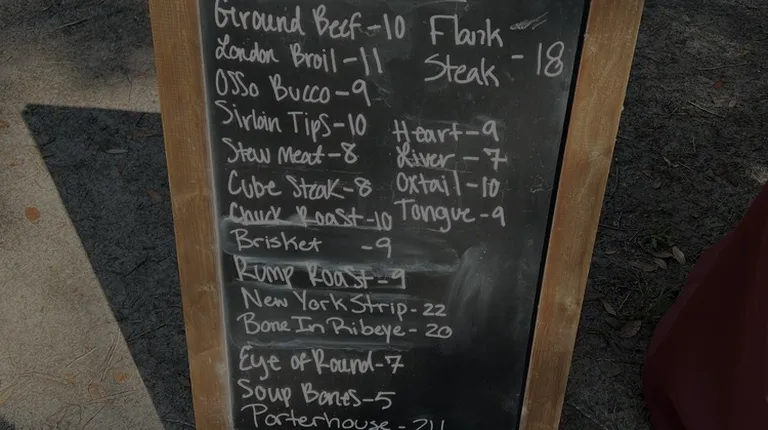 Ground Beef - 10
London Broil - 11
Osso Bucco - 9
Sirloin Tips - 10
Stew Meat - 8
Cube Steak - 8
Chuck Roast - 10
Brisket - 9
Rump Roast - 9
New York Strip - 22
Bone In Ribeye - 20
Eye of Round - 7
Soup Bones - 5
Porterhouse -
Flank
Steak - 18
Heart - 9
Liver - 7
Oxtail - 10
Tongue - 9